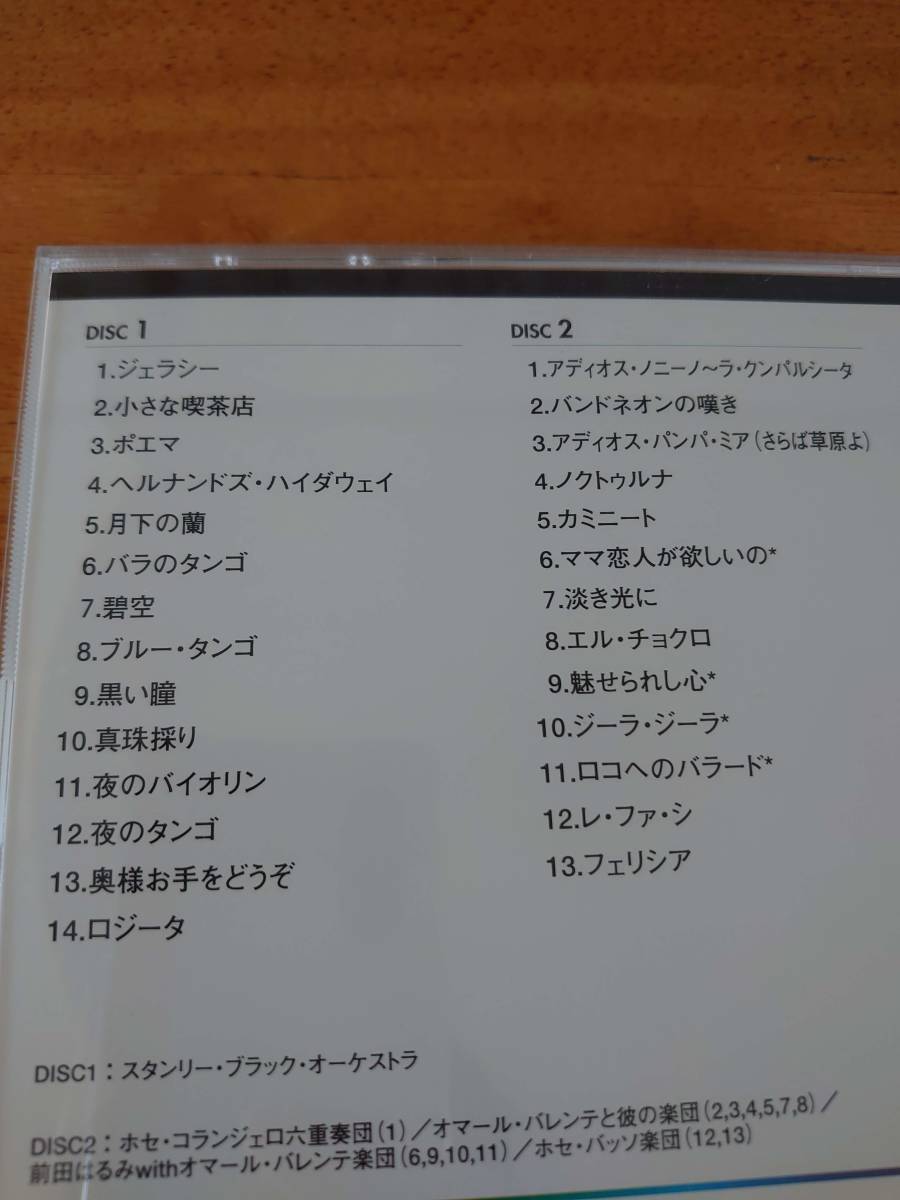 DISC 1
1.ジェラシー
2.小さな喫茶店
3.ポエマ
4.ヘルナンドズ・ハイダウェイ
5.月下の蘭
6.バラのタンゴ
7.碧空
8.ブルー・タンゴ
9.黒い瞳
10.真珠採り
11.夜のバイオリン
12.夜のタンゴ
13.奥様お手をどうぞ
14.ロジータ
DISC 2
1.アディオス・ノニーノ〜ラ・クンパルシータ
2.バンドネオンの嘆き
3.アディオス・パンパ・ミア(さらば草原よ)
4.ノクトゥルナ
5.カミニート
6.ママ恋人が欲しいの*
7.淡き光に
8.エル・チョクロ
9.魅せられし心*
10.ジーラ・ジーラ*
11.ロコへのバラード*
12.レ・ファ・シ
13.フェリシア
DISC1：スタンリー・ブラック・オーケストラ
DISC2：ホセ・コランジェロ六重奏団(1)／オマール・バレンテと彼の楽団(2,3,4,5,7,8)／
前田はるみwithオマール・バレンテ楽団(6,9,10,11)／ホセ・バッソ楽団(12,13)